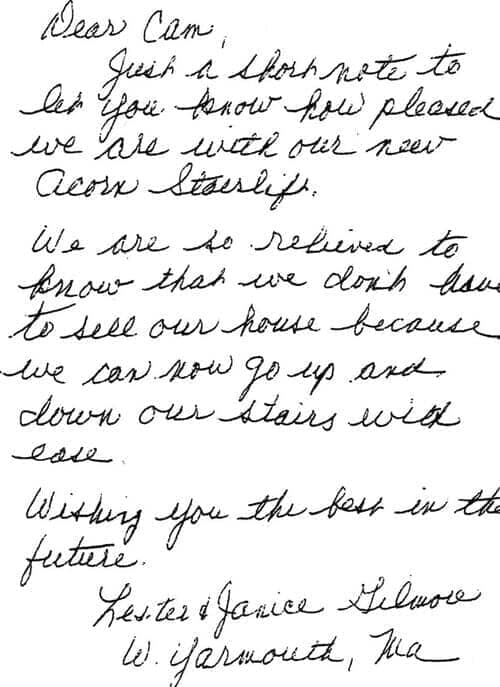 Dear Cam,
Just a short note to
let you know how pleased
we are with our new
Acorn Stairlift.
We are so relieved to
know that we don't have
to sell our house because
we can now go up and
down our stairs with
ease.
Wishing you the best in the
future.
Lester & Janice Gilmore
W. Yarmouth, Ma